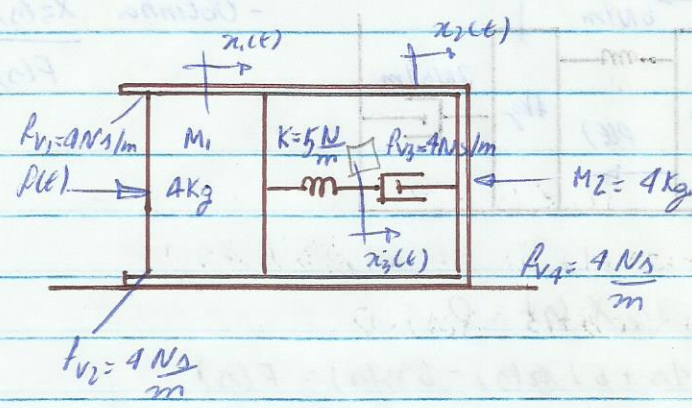 x₁(t)
x₂(t)
fv₁=4Ns/m
M₁
K=5 N/m
fv₃=4Ns/m
f(t)
4Kg
M2=4Kg
x₃(t)
fv₄=4 Ns/m
fv₂=4 Ns/m